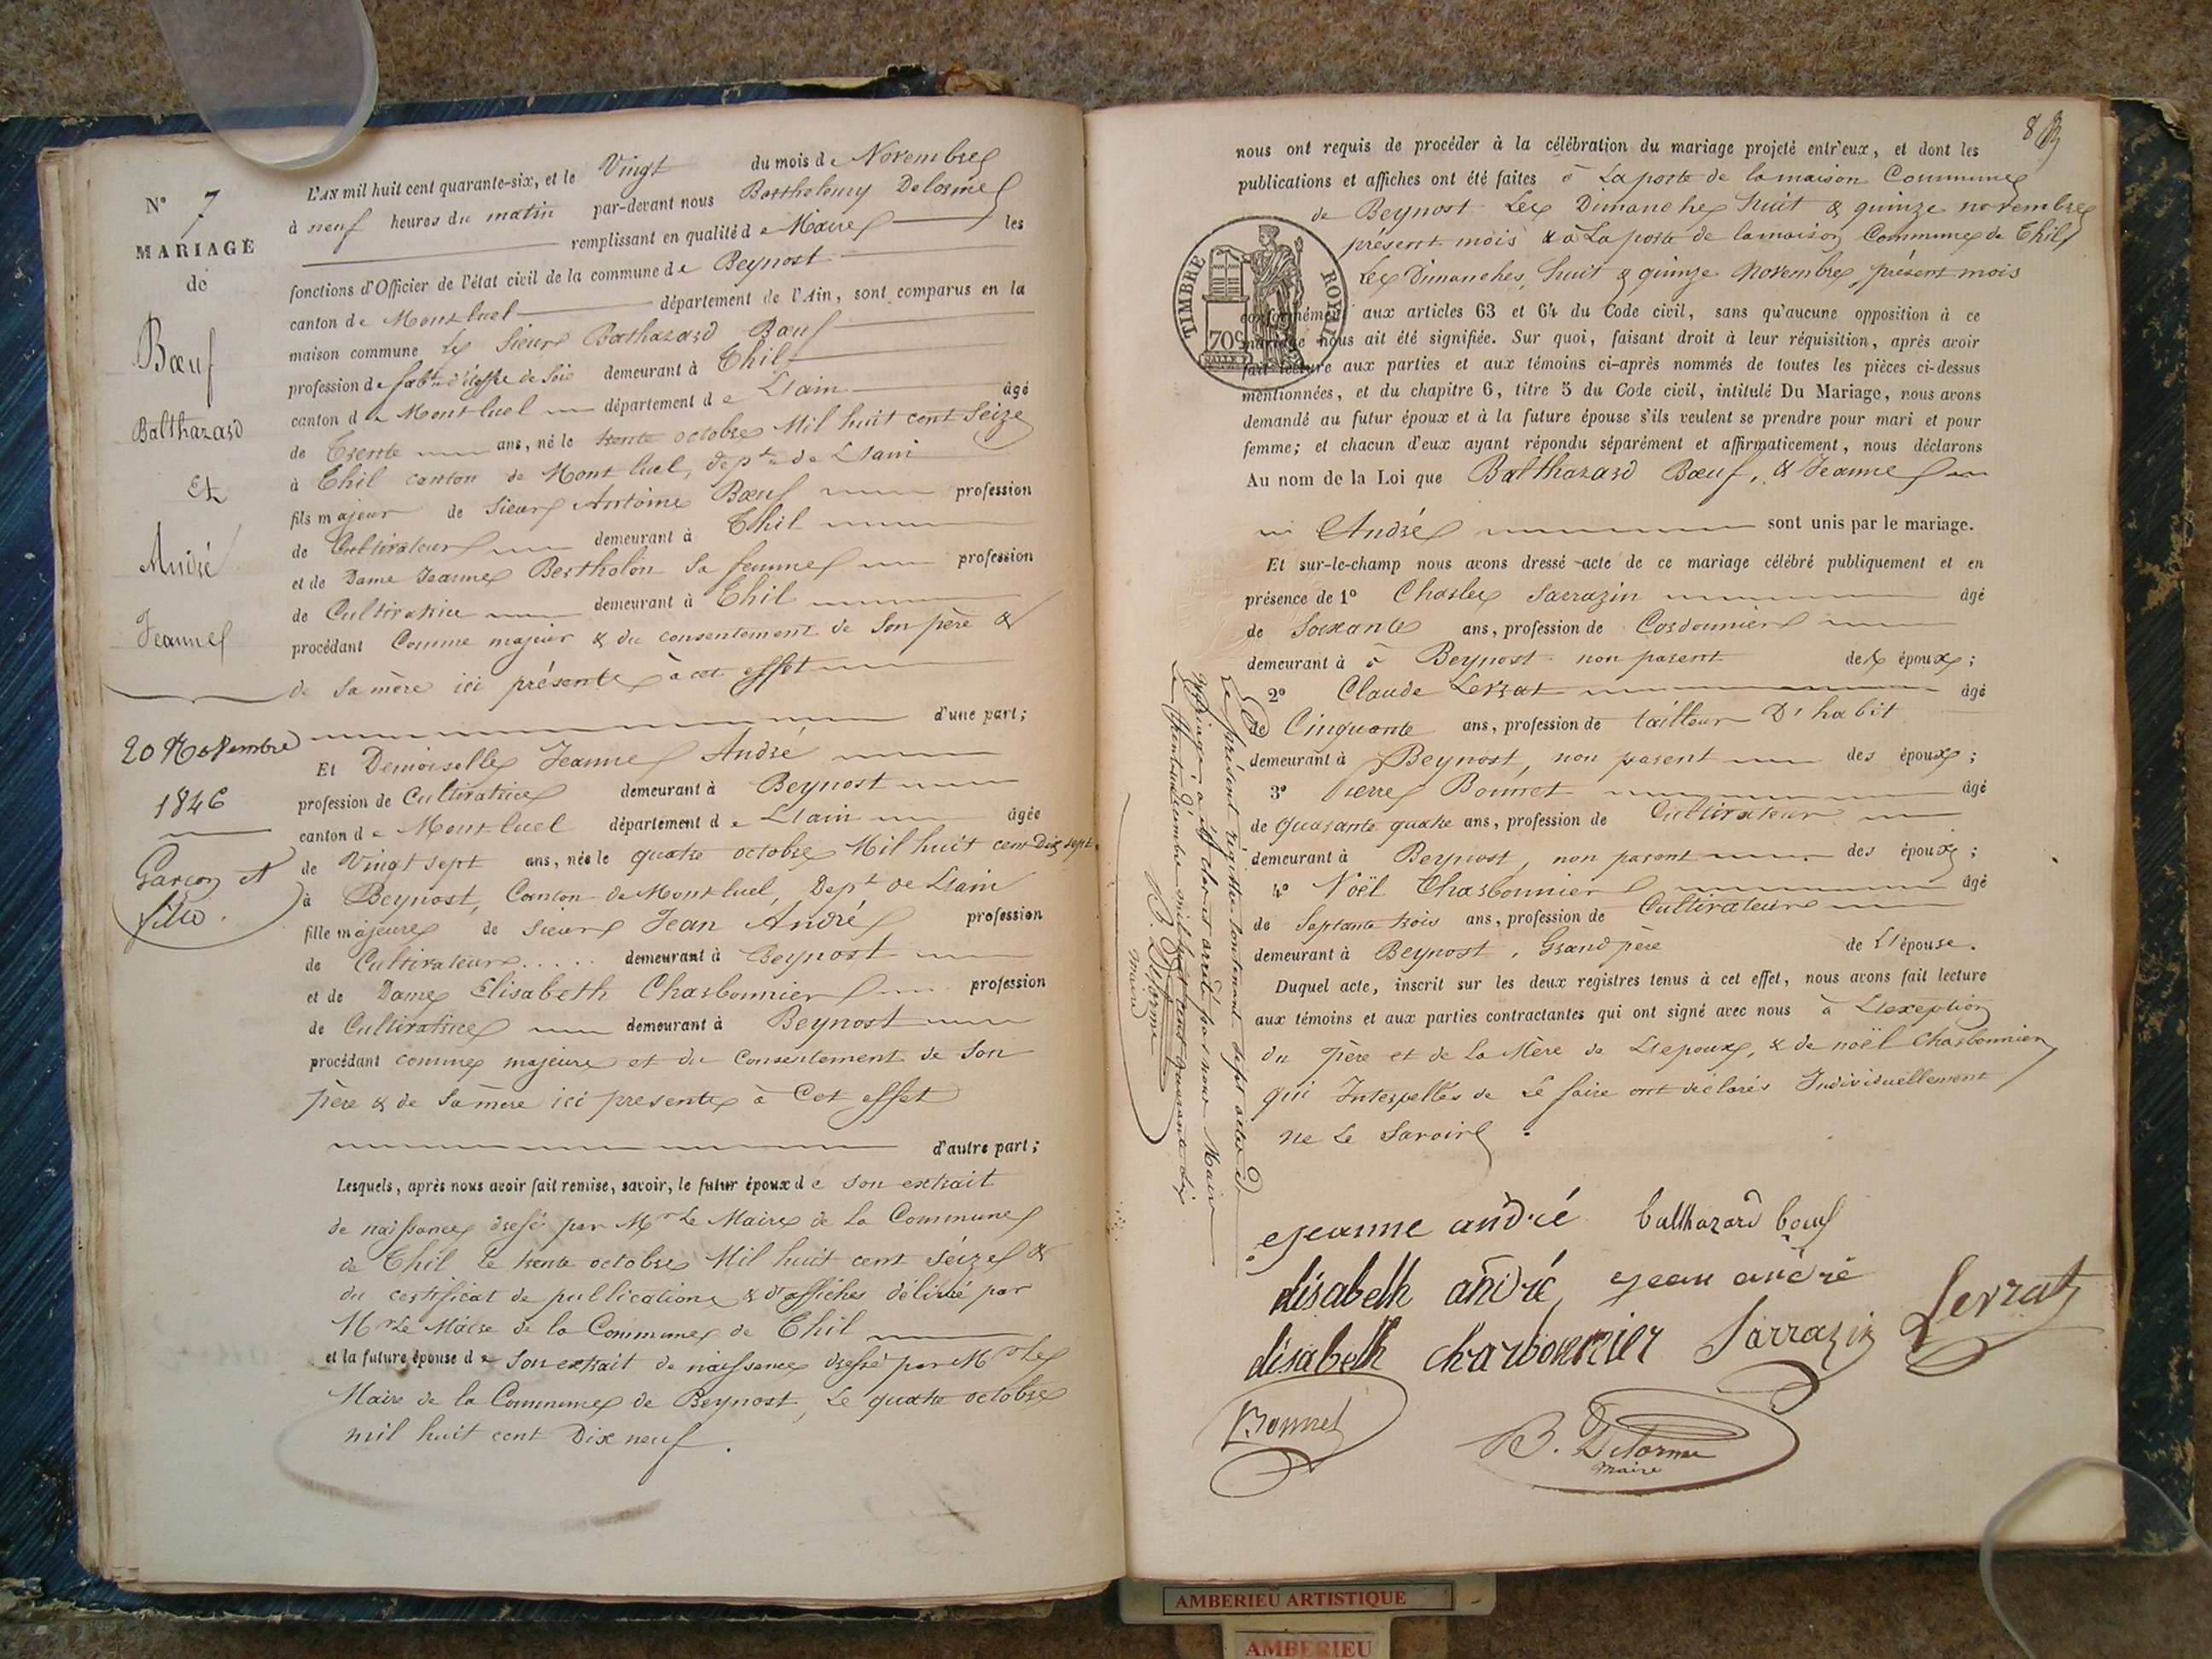 N° 7
MARIAGE
de
Bœuf
Balthazard
Et
André
Jeanne
20 Novembre
1846
Garçon et
fille.
L'AN mil huit cent quarante-six, et le Vingt du mois de Novembre
à neuf heures du matin par-devant nous Berthelemy Delorme
remplissant en qualité de Maire les
fonctions d'Officier de l'état civil de la commune de Beynost
canton de Montluel département de l'Ain, sont comparus en la
maison commune Le Sieur Balthazard Bœuf
profession de fabt d'étoffe de Soie demeurant à Thil
canton de Montluel département de L'ain âgé
de Trente ans, né le trente octobre Mil huit cent Seize
à Thil canton de Montluel, dept de L'ain
fils majeur de Sieur Antoine Bœuf profession
de Cultivateur demeurant à Thil
et de Dame Jeanne Bertholon Sa femme profession
de Cultivatrice demeurant à Thil
procédant Comme majeur & du consentement de Son père &
de Sa mère ici présents à cet effet
d'une part;
Et Demoiselle Jeanne André
profession de Cultivatrice demeurant à Beynost
canton de Montluel département de L'ain âgée
de Vingt sept ans, née le quatre octobre Mil huit cent Dix sept
à Beynost, Canton de Montluel, Dept de L'ain
fille majeure de Sieur Jean André profession
de Cultivateur..... demeurant à Beynost
et de Dame Elisabeth Charbonnier profession
de Cultivatrice demeurant à Beynost
procédant comme majeure et du Consentement de Son
père & de Sa mère ici présents à Cet effet
d'autre part;
Lesquels, après nous avoir fait remise, savoir, le futur époux de Son extrait
de naissance dressé par Mr Le Maire de La Commune
de Thil Le trente octobre Mil huit cent Seize &
du certificat de publications & d'affiches délivré par
Mr Le Maire de la Commune de Thil
et la future épouse de Son extrait de naissance dressé par Mr Le
Maire de la Commune de Beynost, Le quatre octobre
mil huit cent Dix neuf.
8
nous ont requis de procéder à la célébration du mariage projeté entr'eux, et dont les
publications et affiches ont été faites à La porte de la maison Commune
de Beynost Les Dimanches huit & quinze novembre
présent mois & à La porte de la maison Commune de Thil
Les Dimanches, huit & quinze Novembre, présent mois
TIMBRE ROYAL
70c
conformément aux articles 63 et 64 du Code civil, sans qu'aucune opposition à ce
mariage nous ait été signifiée. Sur quoi, faisant droit à leur réquisition, après avoir
fait lecture aux parties et aux témoins ci-après nommés de toutes les pièces ci-dessus
mentionnées, et du chapitre 6, titre 5 du Code civil, intitulé Du Mariage, nous avons
demandé au futur époux et à la future épouse s'ils veulent se prendre pour mari et pour
femme; et chacun d'eux ayant répondu séparément et affirmativement, nous déclarons
Au nom de la Loi que Balthazard Bœuf, & Jeanne
André sont unis par le mariage.
Et sur-le-champ nous avons dressé acte de ce mariage célébré publiquement et en
présence de 1° Charles Sarrazin âgé
de Soixante ans, profession de Cordonnier
demeurant à à Beynost non parent des époux;
2° Claude Lerrat âgé
de Cinquante ans, profession de tailleur D'habit
demeurant à Beynost, non parent des époux;
3° Pierre Bonnet âgé
de quarante quatre ans, profession de Cultivateur
demeurant à Beynost, non parent des époux;
4° Noël Charbonnier âgé
de Septante trois ans, profession de Cultivateur
demeurant à Beynost, Grand père de L'épouse.
Duquel acte, inscrit sur les deux registres tenus à cet effet, nous avons fait lecture
aux témoins et aux parties contractantes qui ont signé avec nous à L'exception
du père et de La Mère de L'époux, & de noël Charbonnier
qui Interpellés de Le faire ont déclarés Individuellement
ne Le Savoir.
Le présent registre contenant sept actes de
Mariage a été clos et arrêté par nous Maire
Le trente un décembre mil huit cent quarante six
B. Delorme
maire
jeanne andré balthazard bœuf
elisabeth andré jean andré
elisabeth charbonnier Sarrazin Lerrat
Bonnet
B. Delorme
maire
AMBERIEU ARTISTIQUE
AMBERIEU